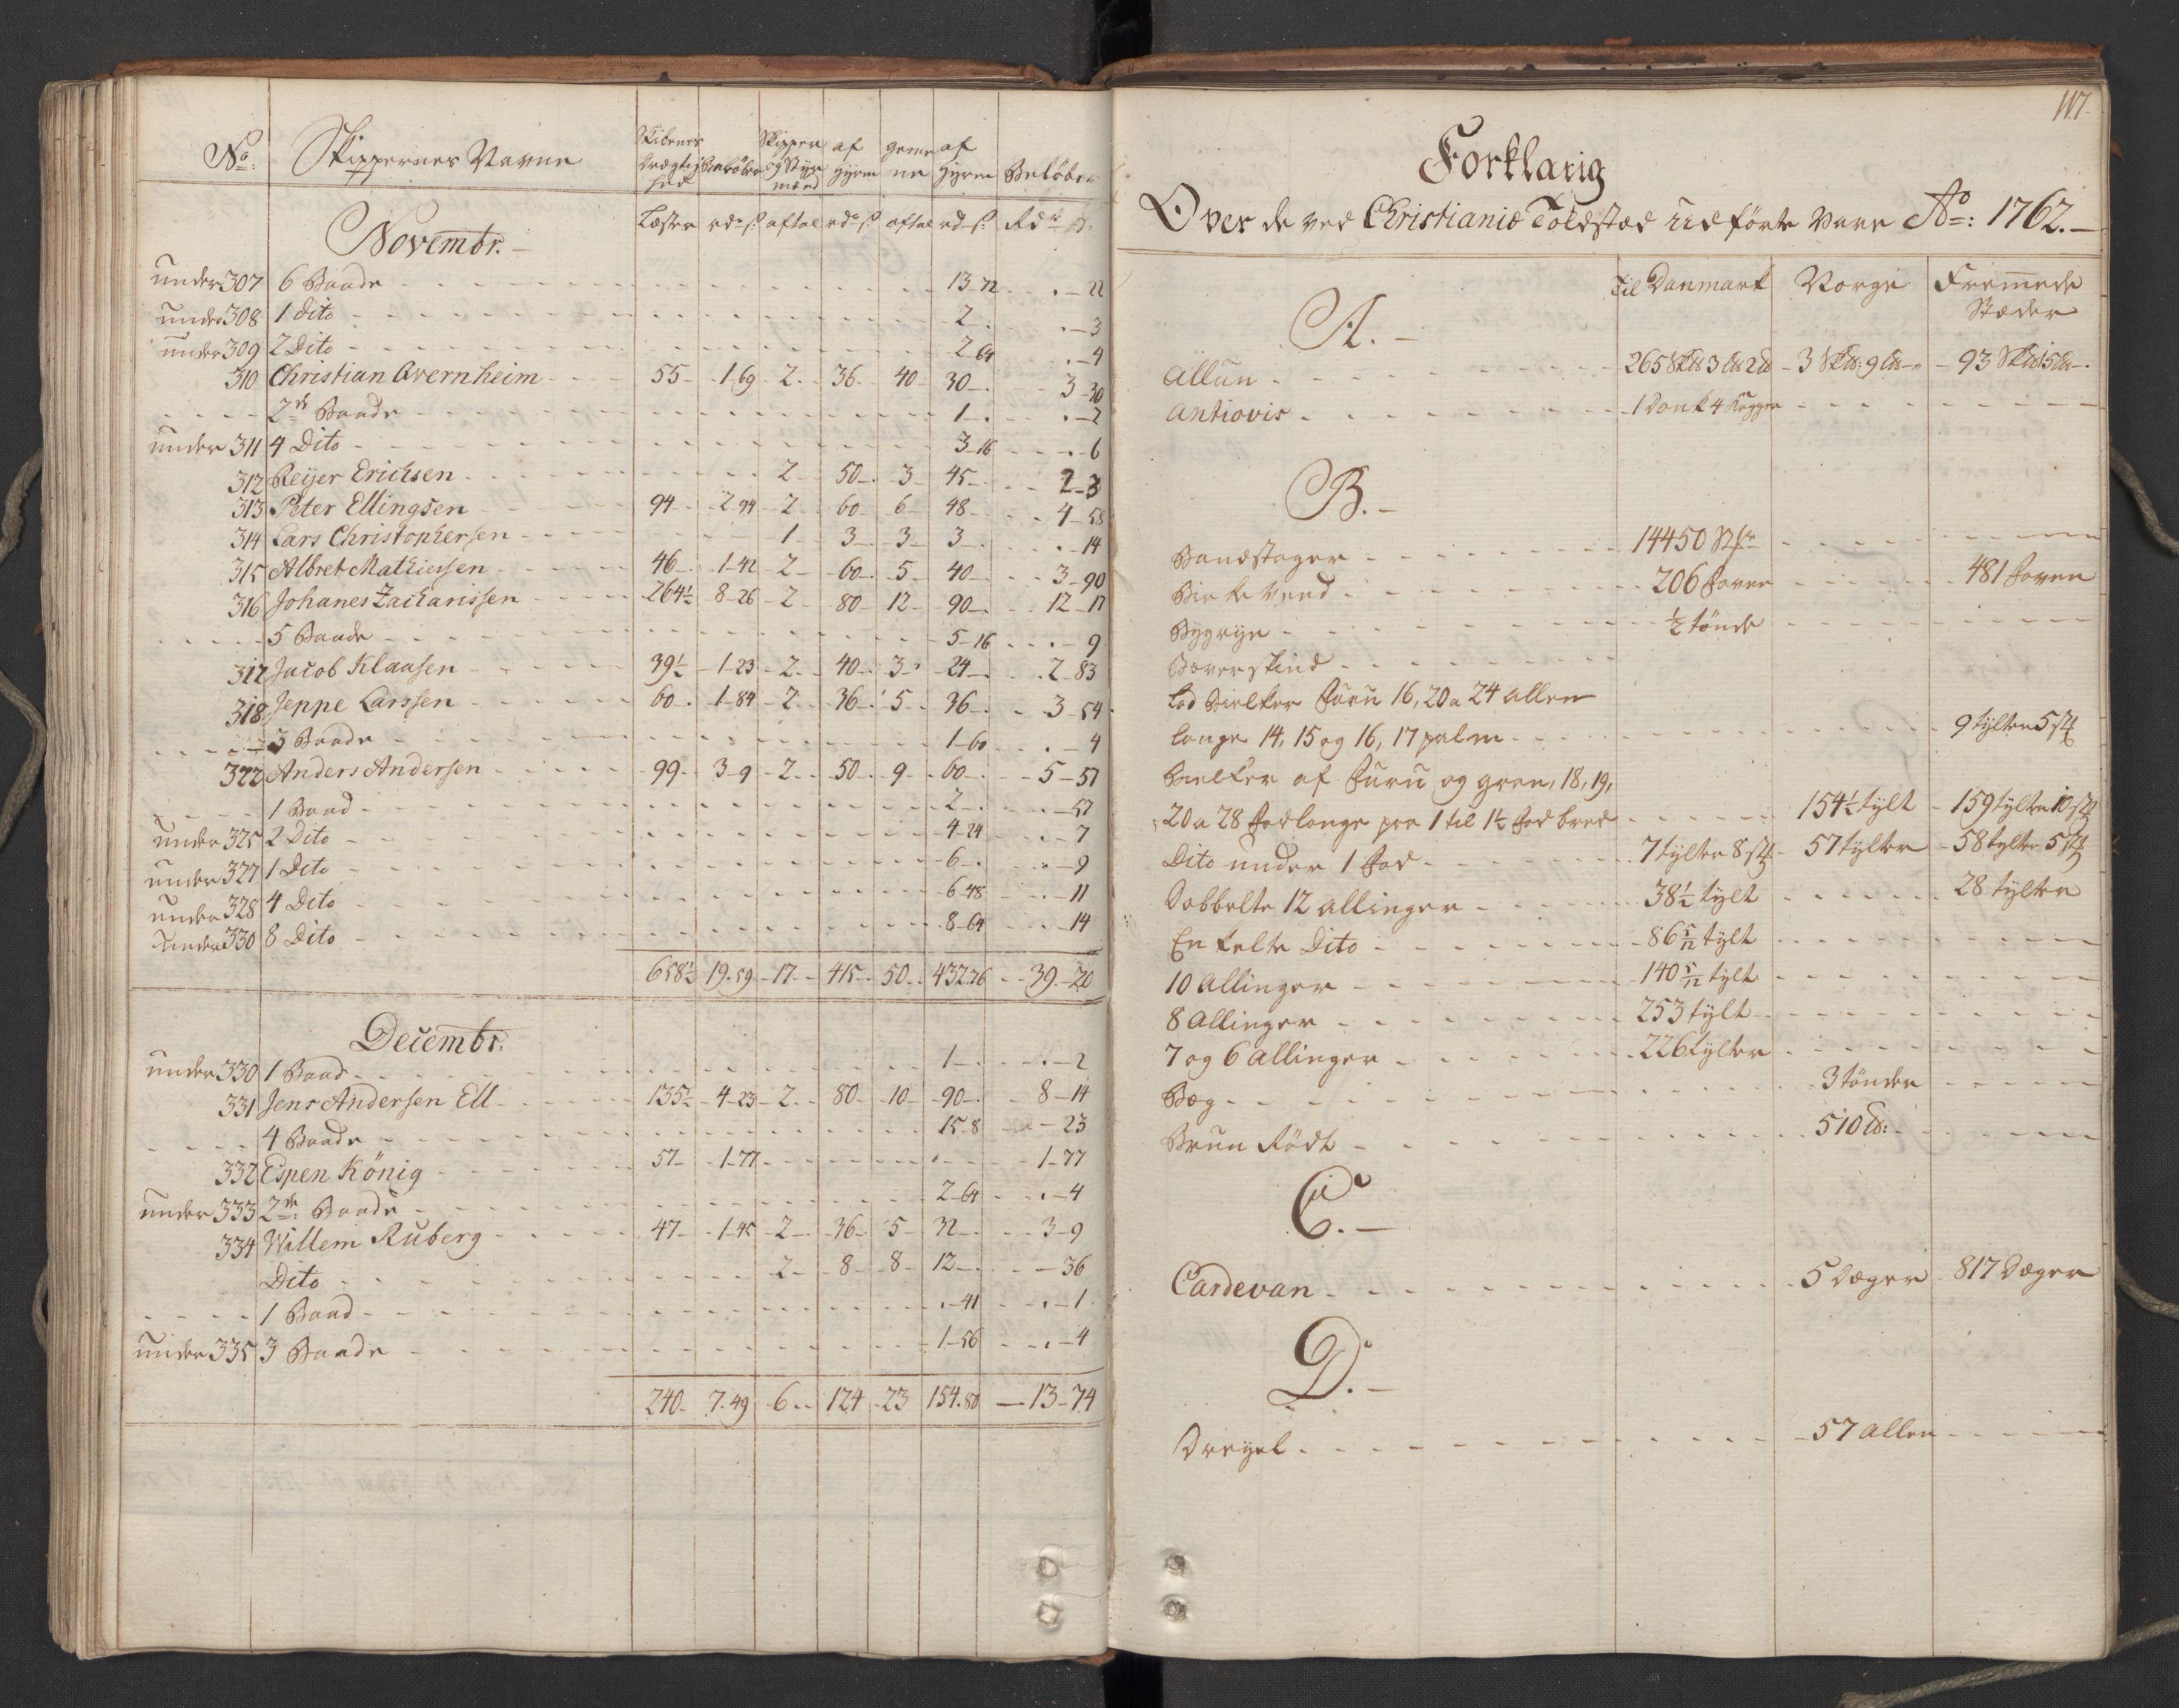 No: Skippernes Navne Skibenes Drægtighed Beløber Skipper og Styrmænd af hyren gemene af hyren Beløber
Læster rdr ß aftal rdr ß aftal rd ß Rdr ß
Novembr.
under 307 6 Baade 13-72 .-22
under 308 1 Dito 2-. .-3
under 309 2 Dito 2-64 .-4
310 Christian Avernheim 55 1-69 2 36 40 30 3-30
2de Baade 1-. .-2
under 311 4 Dito 3-16 .-6
312 Reijer Erichsen 2 50 3 45 2-3
313 Peter Ellingsen 94 2-94 2 60 6 48 4-58
314 Lars Christophersen 1 3 3 3 .-14
315 Albret Mathiesen 46 1-42 2 60 5 40 3-90
316 Johanes Zacharissen 264½ 8-26 2 80 12 90 12-17
5 Baade 5-16 .-9
317 Jacob Klaasen 39½ 1-23 2 40 3 24 2-83
318 Jeppe Larssen 60 1-84 2 36 5 36 3-54
3 Baade 1-60 .-4
322 Anders Andersen 99 3-9 2 50 9 60 5-57
1 Baad 2-. .-57
under 325 2 Dito 4-24 .-7
under 327 1 Dito 6-. .-9
under 328 4 Dito 6-48 .-11
under 330 8 Dito 8-64 .-14
658½ 19-59 17 415 50 432.76 39-20
Decembr.
under 330 1 Baad 1-. .-2
331 Jens Andersen Ell 135½ 4-23 2 80 10 90 8-14
4 Baade 15-8 .-23
332 Espen König 57 1-77 1-77
under 333 2de: Baade 2-64 .-4
334 Willem Ruberg 47 1-45 2 36 5 32 3-9
Dito 2 8 8 12 .-36
1 Baad .-41 .-1
under 335 3 Baade 1-56 .-4
240 7-49 6 124 23 154.80 13-74
117.
Forklarig
Over de ved Christianiæ Toldstæd udførte Vare Ao: 1762.
Til Danmark Norge Fremmede Stæder
A.
Allun 265 Sk℔ 3 L℔ 2 ℔ 3 Sk℔: 9 L℔ 93 Sk℔ 5 L℔
Antiovis 1 Donk 4 Kagger
B.
Baandstager 14450 Stkr
Birkeved 206 Favne 481 Favne
Byggryn ½ tønde
Bæverskind
Lad Bielker Furu 16, 20 a 24 allen
lange 14, 15 og 16, 17 palm 9 tylter 5 stk
Bielker af Furu og gran, 18, 19,
20 a 28 fod lange paa 1 til 1½ fod bred 154½ tylt 159 tylter 10 stk
Dito under 1 fod 7 tylter 8 stk 57 tylter 58 tylter 5 stk
Dobbelte 12 allinger 38½ tylt 28 tylter
Enkelte Dito 86 5/12 tylt
10 Allinger 140 5/12 tylt
8 Allinger 253 tylt
7 og 6 Allinger 226 tylter
Bæg 3 tønder
Brun Rødt 510 ℔:
C.
Cardevan 5 Dæger 817 Dæger
D.
Dreyel 57 allen